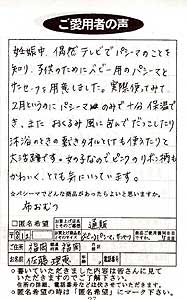 ご愛用者の声
妊娠中、偶然テレビでパシーマのことを
知り、子供のためにベビー用のパシーマと
サニセーフを用意しました。実際使ってみて、
2月というのにパシーマ一枚のみで十分保温で
き、また、おくるみ風に包んでだっこしたり
沐浴のときの敷きタオルとしても使えたりと
大活躍です。女の子なのでピンクのリボン柄も
かわいく、とても気にいっています。
☆パシーマでどんな商品があったらよいと思いますか。
布おむつ
□匿名希望
お買上げ店名
通販
ご住所
福岡
福岡
お名前
佐藤
○書いていただきました内容は皆さんに見て
いただきますのでご了承ください。
住所の詳細、電話番号などは伏せさせて頂きます。
●匿名希望の時は「匿名希望」にマーク下さい。